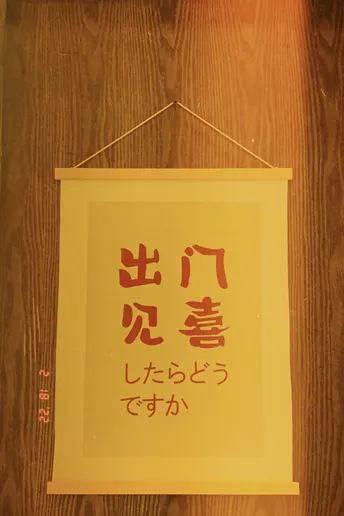 出门
见喜
したらどう
ですか
2 18 '22